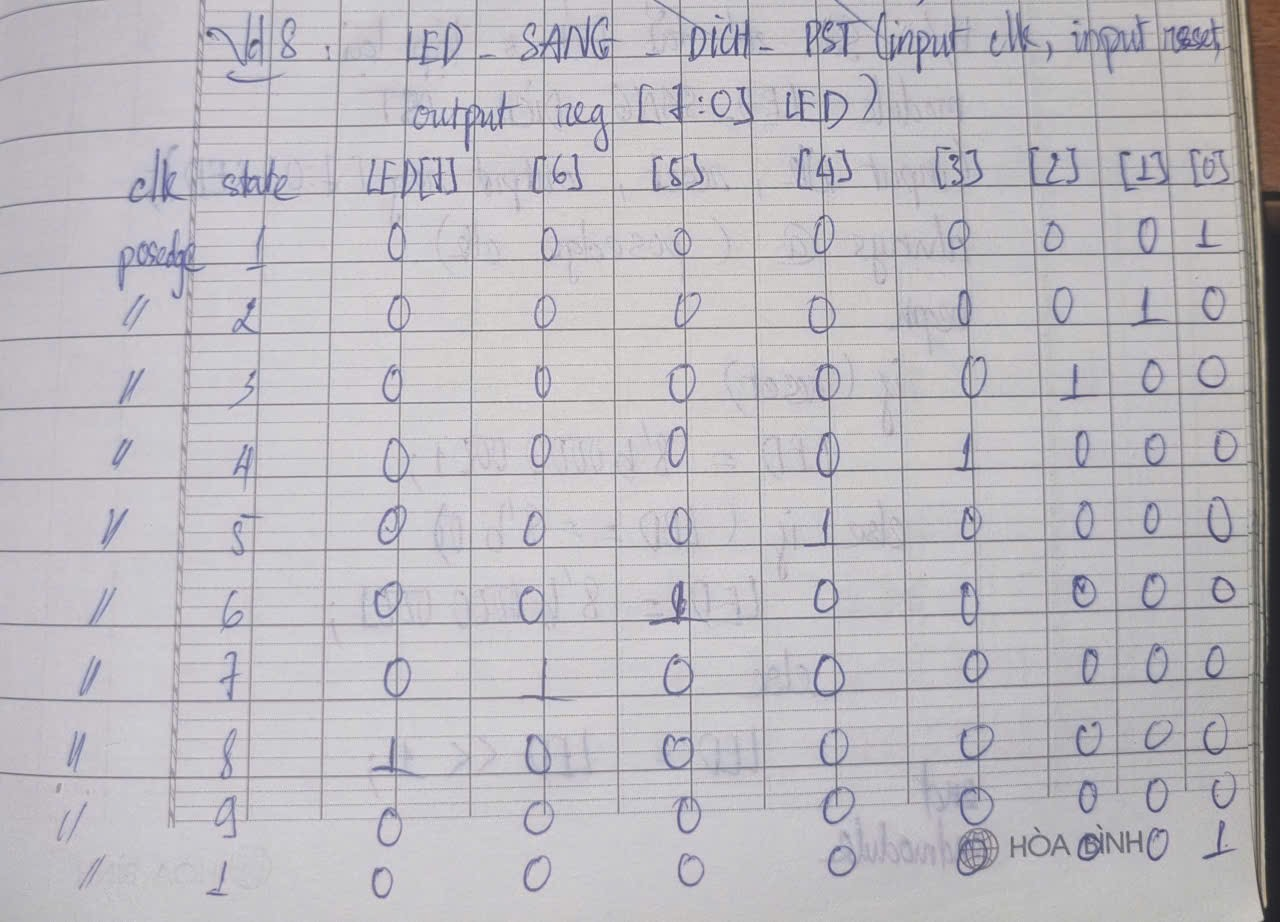 Vd 8 : LED _ SANG _ DỊCH _ PST (input clk, input reset,
output reg [7:0] LED)
clk state LED[7] [6] [5] [4] [3] [2] [1] [0]
posedge 1 0 0 0 0 0 0 0 1
〃 2 0 0 0 0 0 0 1 0
〃 3 0 0 0 0 0 1 0 0
〃 4 0 0 0 0 1 0 0 0
〃 5 0 0 0 1 0 0 0 0
〃 6 0 0 1 0 0 0 0 0
〃 7 0 1 0 0 0 0 0 0
〃 8 1 0 0 0 0 0 0 0
〃 9 0 0 0 0 0 0 0 0
〃 1 0 0 0 0 0 0 0 1
HÒA BÌNH